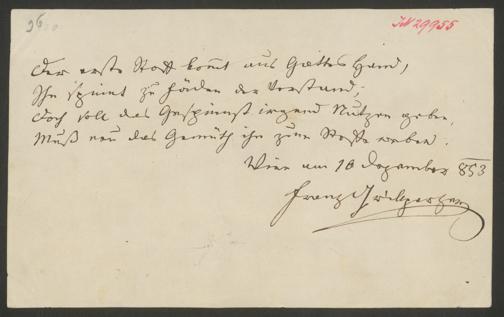 96
IN 29955
Der erste Stoff kommt aus Gottes Hand,
Ihn spinnt zu Fäden der Verstand;
Doch soll das Gespinnst irgend Nutzen geben,
Muß neu das Gemüth ihn zum Stoffe weben.
Wien am 10 Dezember 853
Franz Grillparzer